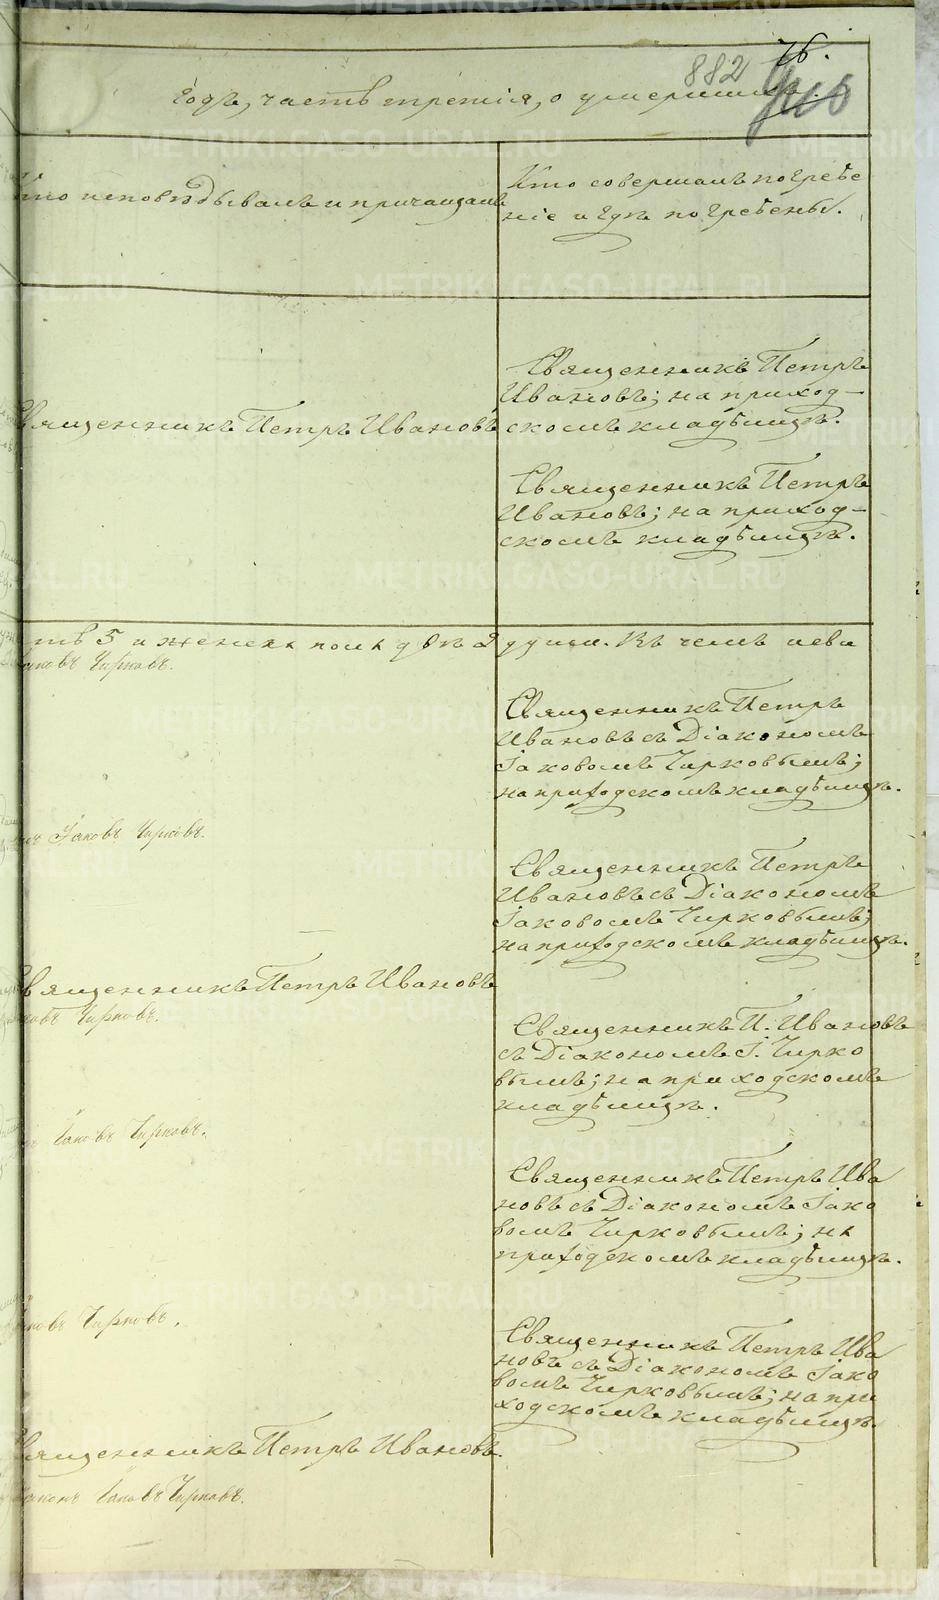 76.
882
годъ, часть третія, о умершихъ.
Кто исповѣдывалъ и причащалъ
Кто совершалъ погребе
ніе и гдѣ погребены.
Священникъ Петръ
Ивановъ; на приход-
скомъ кладбищѣ.
вященникъ Петръ Ивановъ
Священникъ Петръ
Ивановъ; на приход-
скомъ кладбищѣ.
5 и женска пола двѣ 2 души. Въ чемъ
ковъ Чирковъ.
Священникъ Петръ
Ивановъ съ Діакономъ
Іаковомъ Чирковымъ;
на приходскомъ кладбищѣ.
Іаковъ Чирковъ.
Священникъ Петръ
Ивановъ съ Діакономъ
Іаковомъ Чирковымъ;
на приходскомъ кладбищѣ.
вященникъ Петръ Ивановъ
ковъ Чирковъ.
Священникъ П. Ивановъ
съ Діакономъ І. Чирко
вымъ; на приходскомъ
кладбищѣ.
Іаковъ Чирковъ.
Священникъ Петръ Ива
новъ съ Діакономъ Іако
вомъ Чирковымъ; на
приходскомъ кладбищѣ.
ковъ Чирковъ.
Священникъ Петръ Ива
новъ съ Діакономъ Іако
вомъ Чирковымъ; на при
ходскомъ кладбищѣ.
вященникъ Петръ Ивановъ.
аконъ Іаковъ Чирковъ.
METRIKI.GASO-URAL.RU